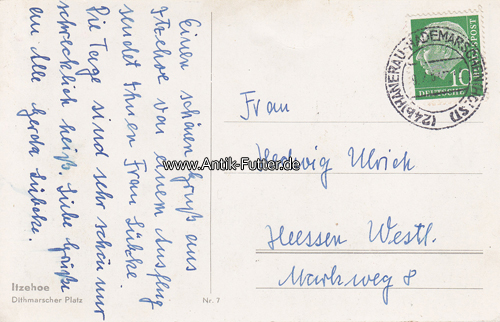 Einen schönen Gruß aus
Itzehoe von einem Ausflug
sendet Ihnen Frau Lübcke
Die Tage sind sehr schön nur
schrecklich heiß. Liebe Grüße
an Alle Gerda Lübcke.
Frau
Hedwig Ulrich
Heessen Westl.
Markweg 8
DEUTSCHE
POST
10
(24b) HANERAU-HADEMARSCHEN
www.Antik-Futter.de
Itzehoe
Dithmarscher Platz
Nr. 7